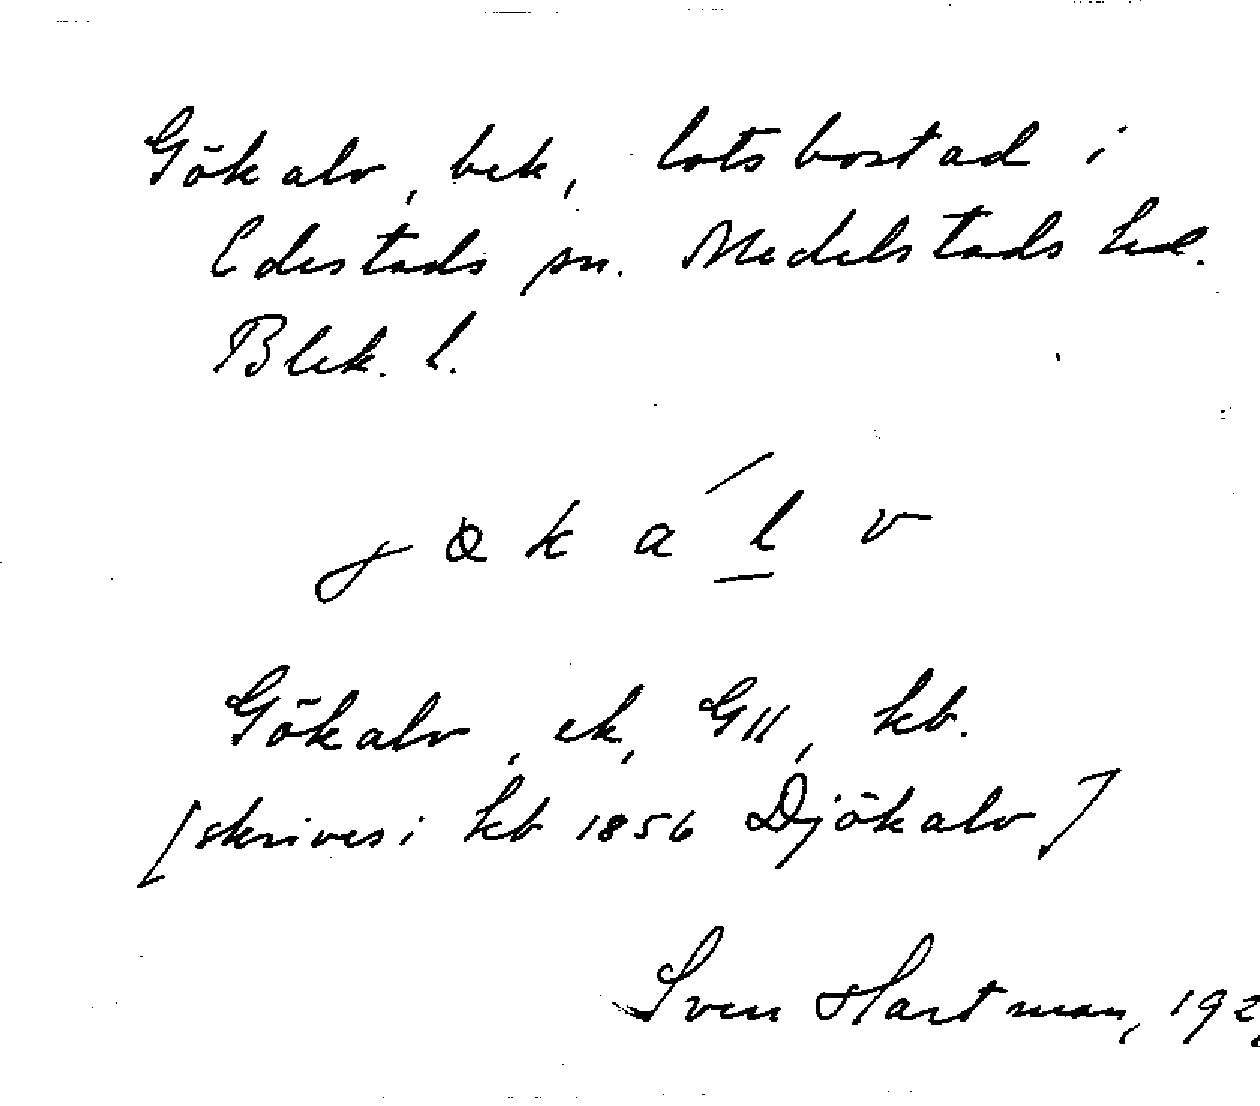 Gökalv, bek, lotsbostad i
Edestads sn. Medelstads hd.
Blek. l.
Gökalv, ek, GII, kb.
[skrives i kb 1856 Djökalv]
Sven Hartman, 192